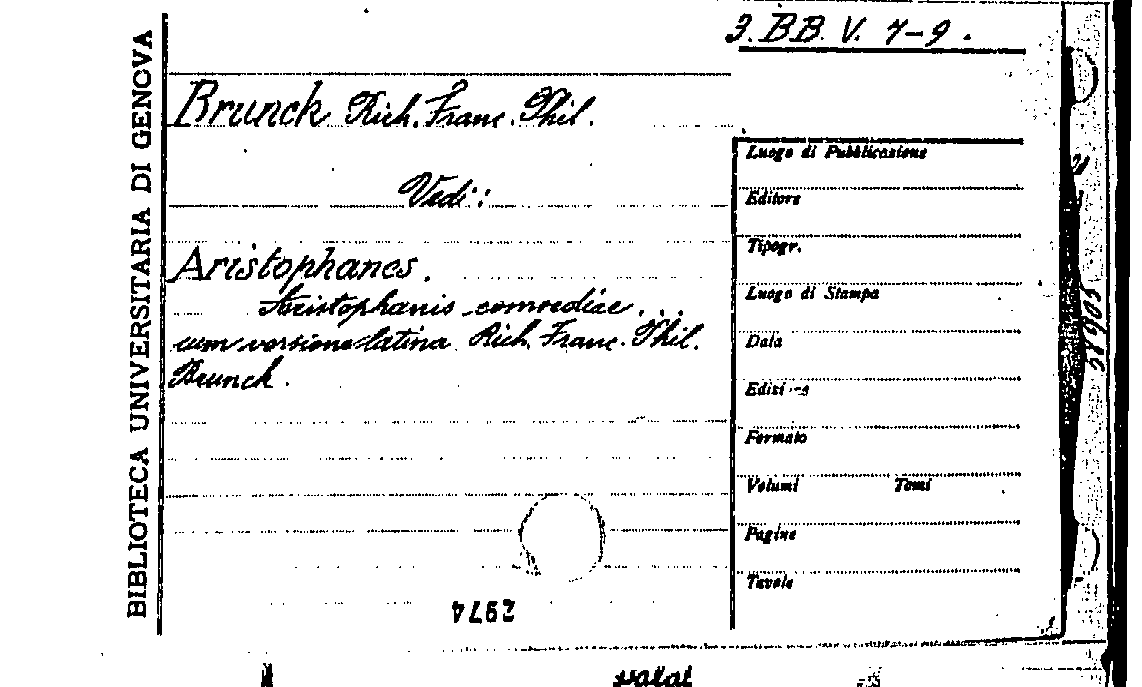 3.BB.V. 7-9.
BIBLIOTECA UNIVERSITARIA DI GENOVA
Brunck Rich. Franc. Phil.
Vedi:
Aristophanes.
Aristophanis comoediae ...
cum versione latina Rich. Franc. Phil.
Brunck.
Luogo di Pubblicazione
Editore
Tipogr.
Luogo di Stampa
Data
Formato
Volumi Tomi
Pagine
Tavole
2974